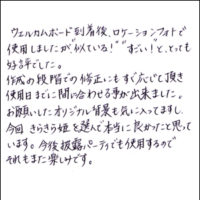 ウェルカムボード到着後、ロケーションフォトで
使用しましたが"似ている!""すごい!"と、とっても
好評でした。
作成の段階での修正にもすぐ応じて頂き
使用日までに間に合わせる事が出来ました。
お願いしたオリジナル背景も気に入ってますし、
今回きらきら姫を選んで本当に良かったと思って
います。今後披露パーティでも使用するので
それもまた楽しみです。